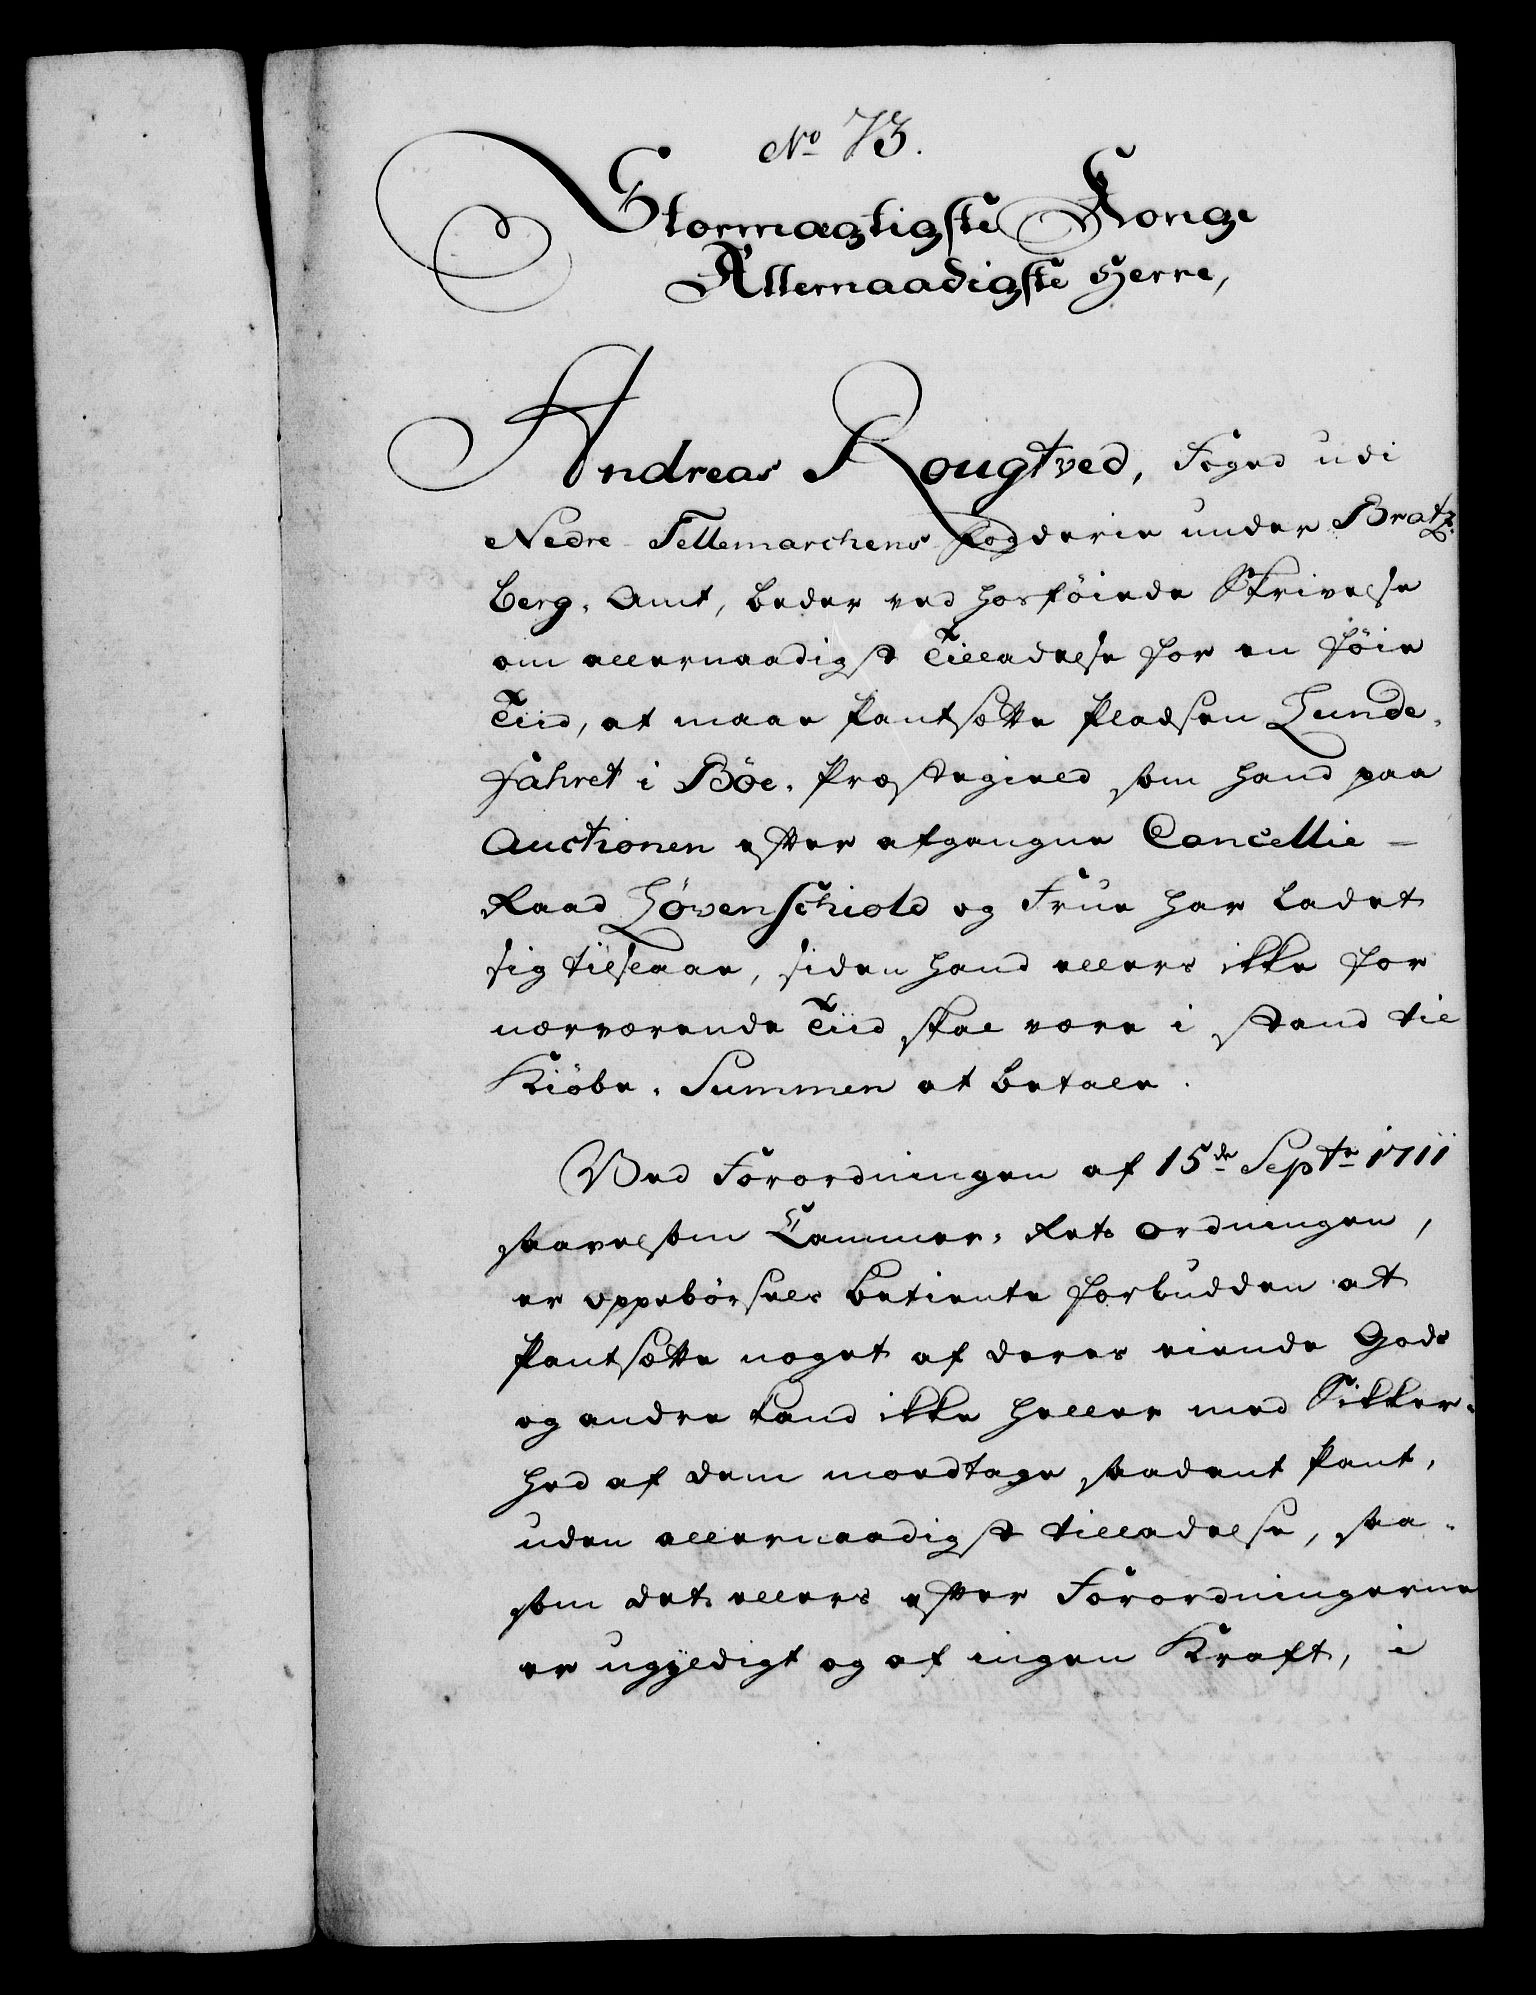 No 73.
Stormægtigste Konge
Allernaadigste Herre,
Andreas Rougtved, Foged udi
Nedre-Tellemarchens Fogderie under Bratz-
berg-Amt, beder ved hosföiede Skrivelse
om allernaadigst Tilladelse for en föie
Tiid, at maae Pantsætte Pladsen Lunde-
fahret i Böe-Præstegield som hand paa
Auctionen efter afgangne Cancellie-
Raad Lövenschiold og Frue har ladet
sig tilslaae, siden hand ellers ikke for
nærværende Tiid skal være i stand til
Kiöbe-Summen at betale.
Ved Forordningen af 15de Septr 1711
saavelsom Cammer-Rets Ordningen,
er oppebörsels betiente forbudden at
Pantsætte noget af deres eiende Gods
og andre kand ikke heller med Sikker-
hed af dem modtage saadant Pant,
uden allernaadigst tilladelse, saa-
som det ellers efter Forordningerne
er ugyldigt og af ingen Kraft, i